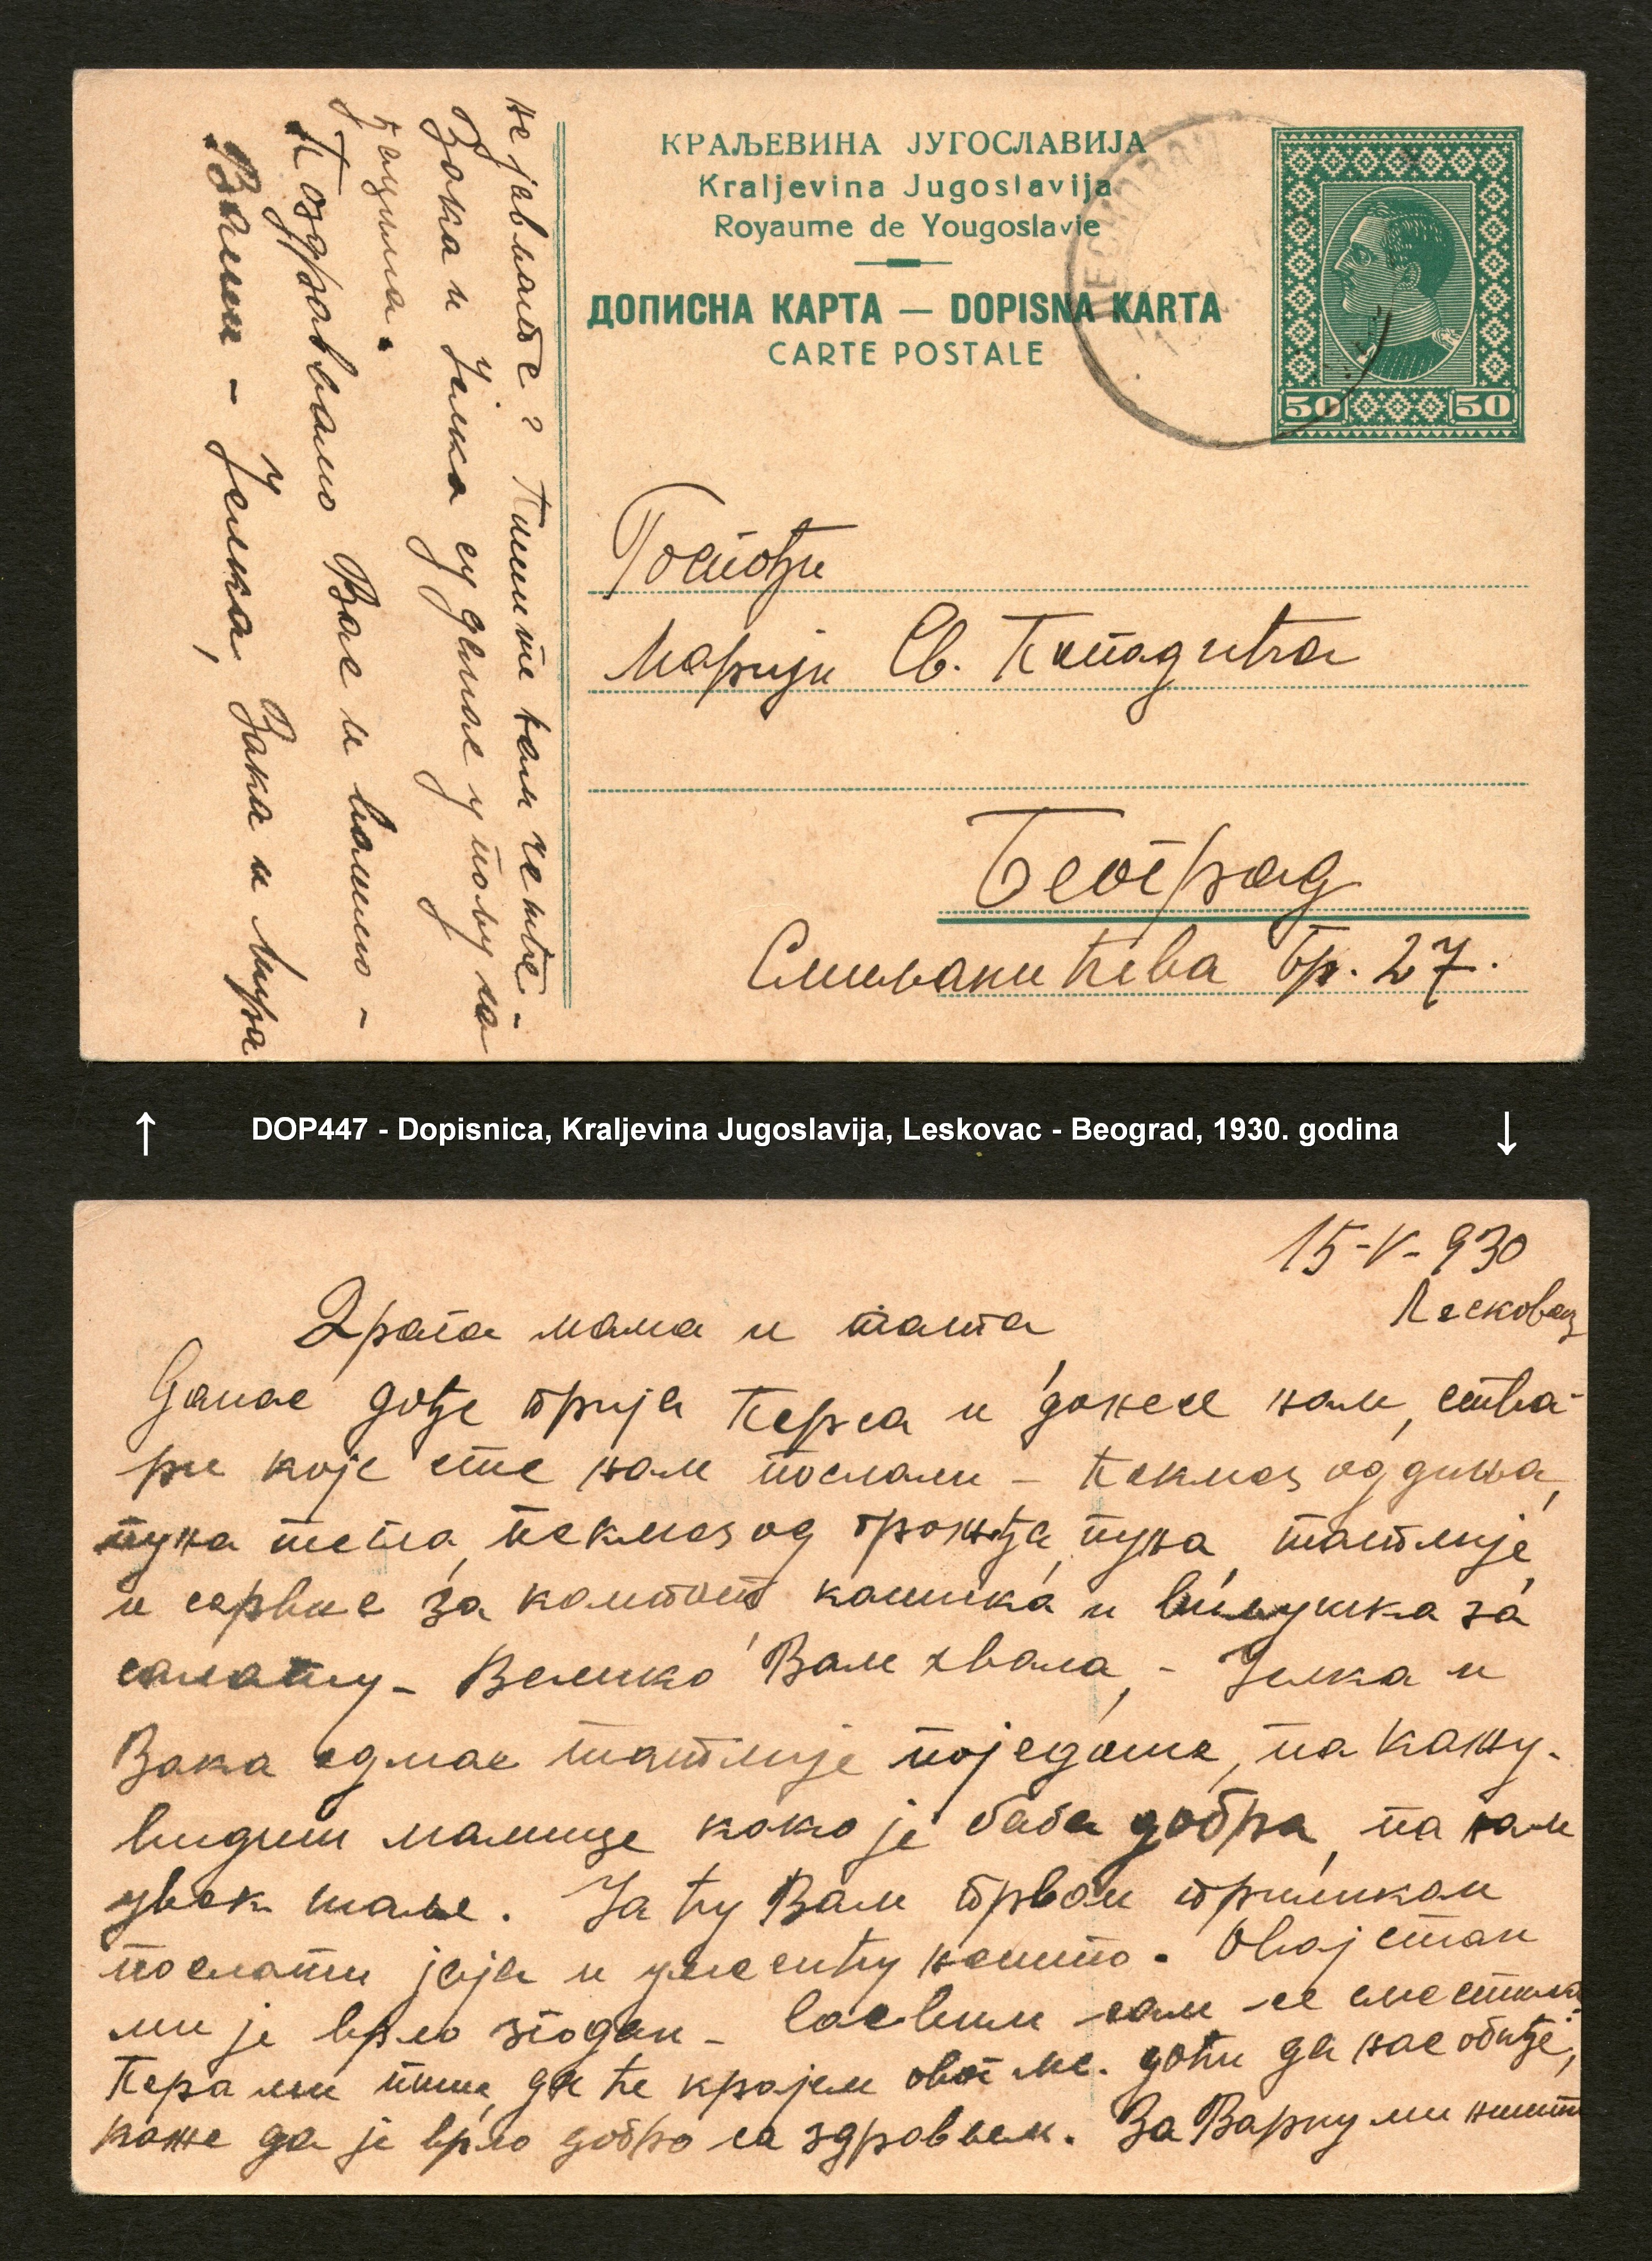 КРАЉЕВИНА ЈУГОСЛАВИЈА
Kraljevina Jugoslavija
Royaume de Yougoslavie
ДОПИСНА КАРТА — DOPISNA KARTA
CARTE POSTALE
50 50
ЛЕСКОВАЦ
Госпођи
Марији Св. Попадића
Београд
Смиљанићева бр. 27.
не јављате? Пишите нам чешће -
Зока и Јелка су данас у
Поздрављамо Вас и волимо -
Ваши - Јелка, Зака и Мира
DOP447 - Dopisnica, Kraljevina Jugoslavija, Leskovac - Beograd, 1930. godina
15-V-930
Лесковац
Драга мама и тата
Данас дође прија Перса и донесе нам ства-
ри које сте нам послали - пекмез од дуња,
пуна тегла, пекмез од грожђа, пуна татлије
и сервис за компот кашика и виљушка за
салату - Велико Вам хвала, - Јелка и
Зака одмах татлије поједоше, па кажу -
видиш мамице како је баба добра, па нам
увек шаље. Ја ћу Вам првом приликом
послати јаја и умесићу нешто. Овај стан
ми је врло згодан - Сасвим сам се сместила
Пера ми пише, да ће крајем овог ме. доћи да нас обиђе,
каже да је врло добро са здрављем. За Варку ми ништа